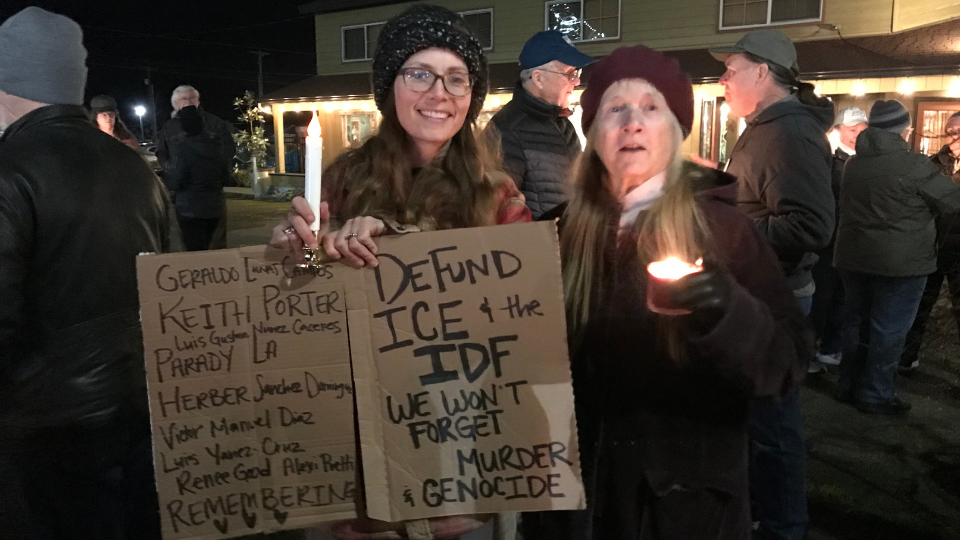 GERALDO LUNAS CAMPOS
KEITH PORTER
Luis Gustavo Nunez Caceres
PARADY LA
HERBER Sanchez Dominguez
Victor Manuel Diaz
Luis Yanez-Cruz
Renee Good Alex Pretti
REMEMBERING
DEFUND
ICE & the
IDF
WE WON'T
FORGET
MURDER
& GENOCIDE